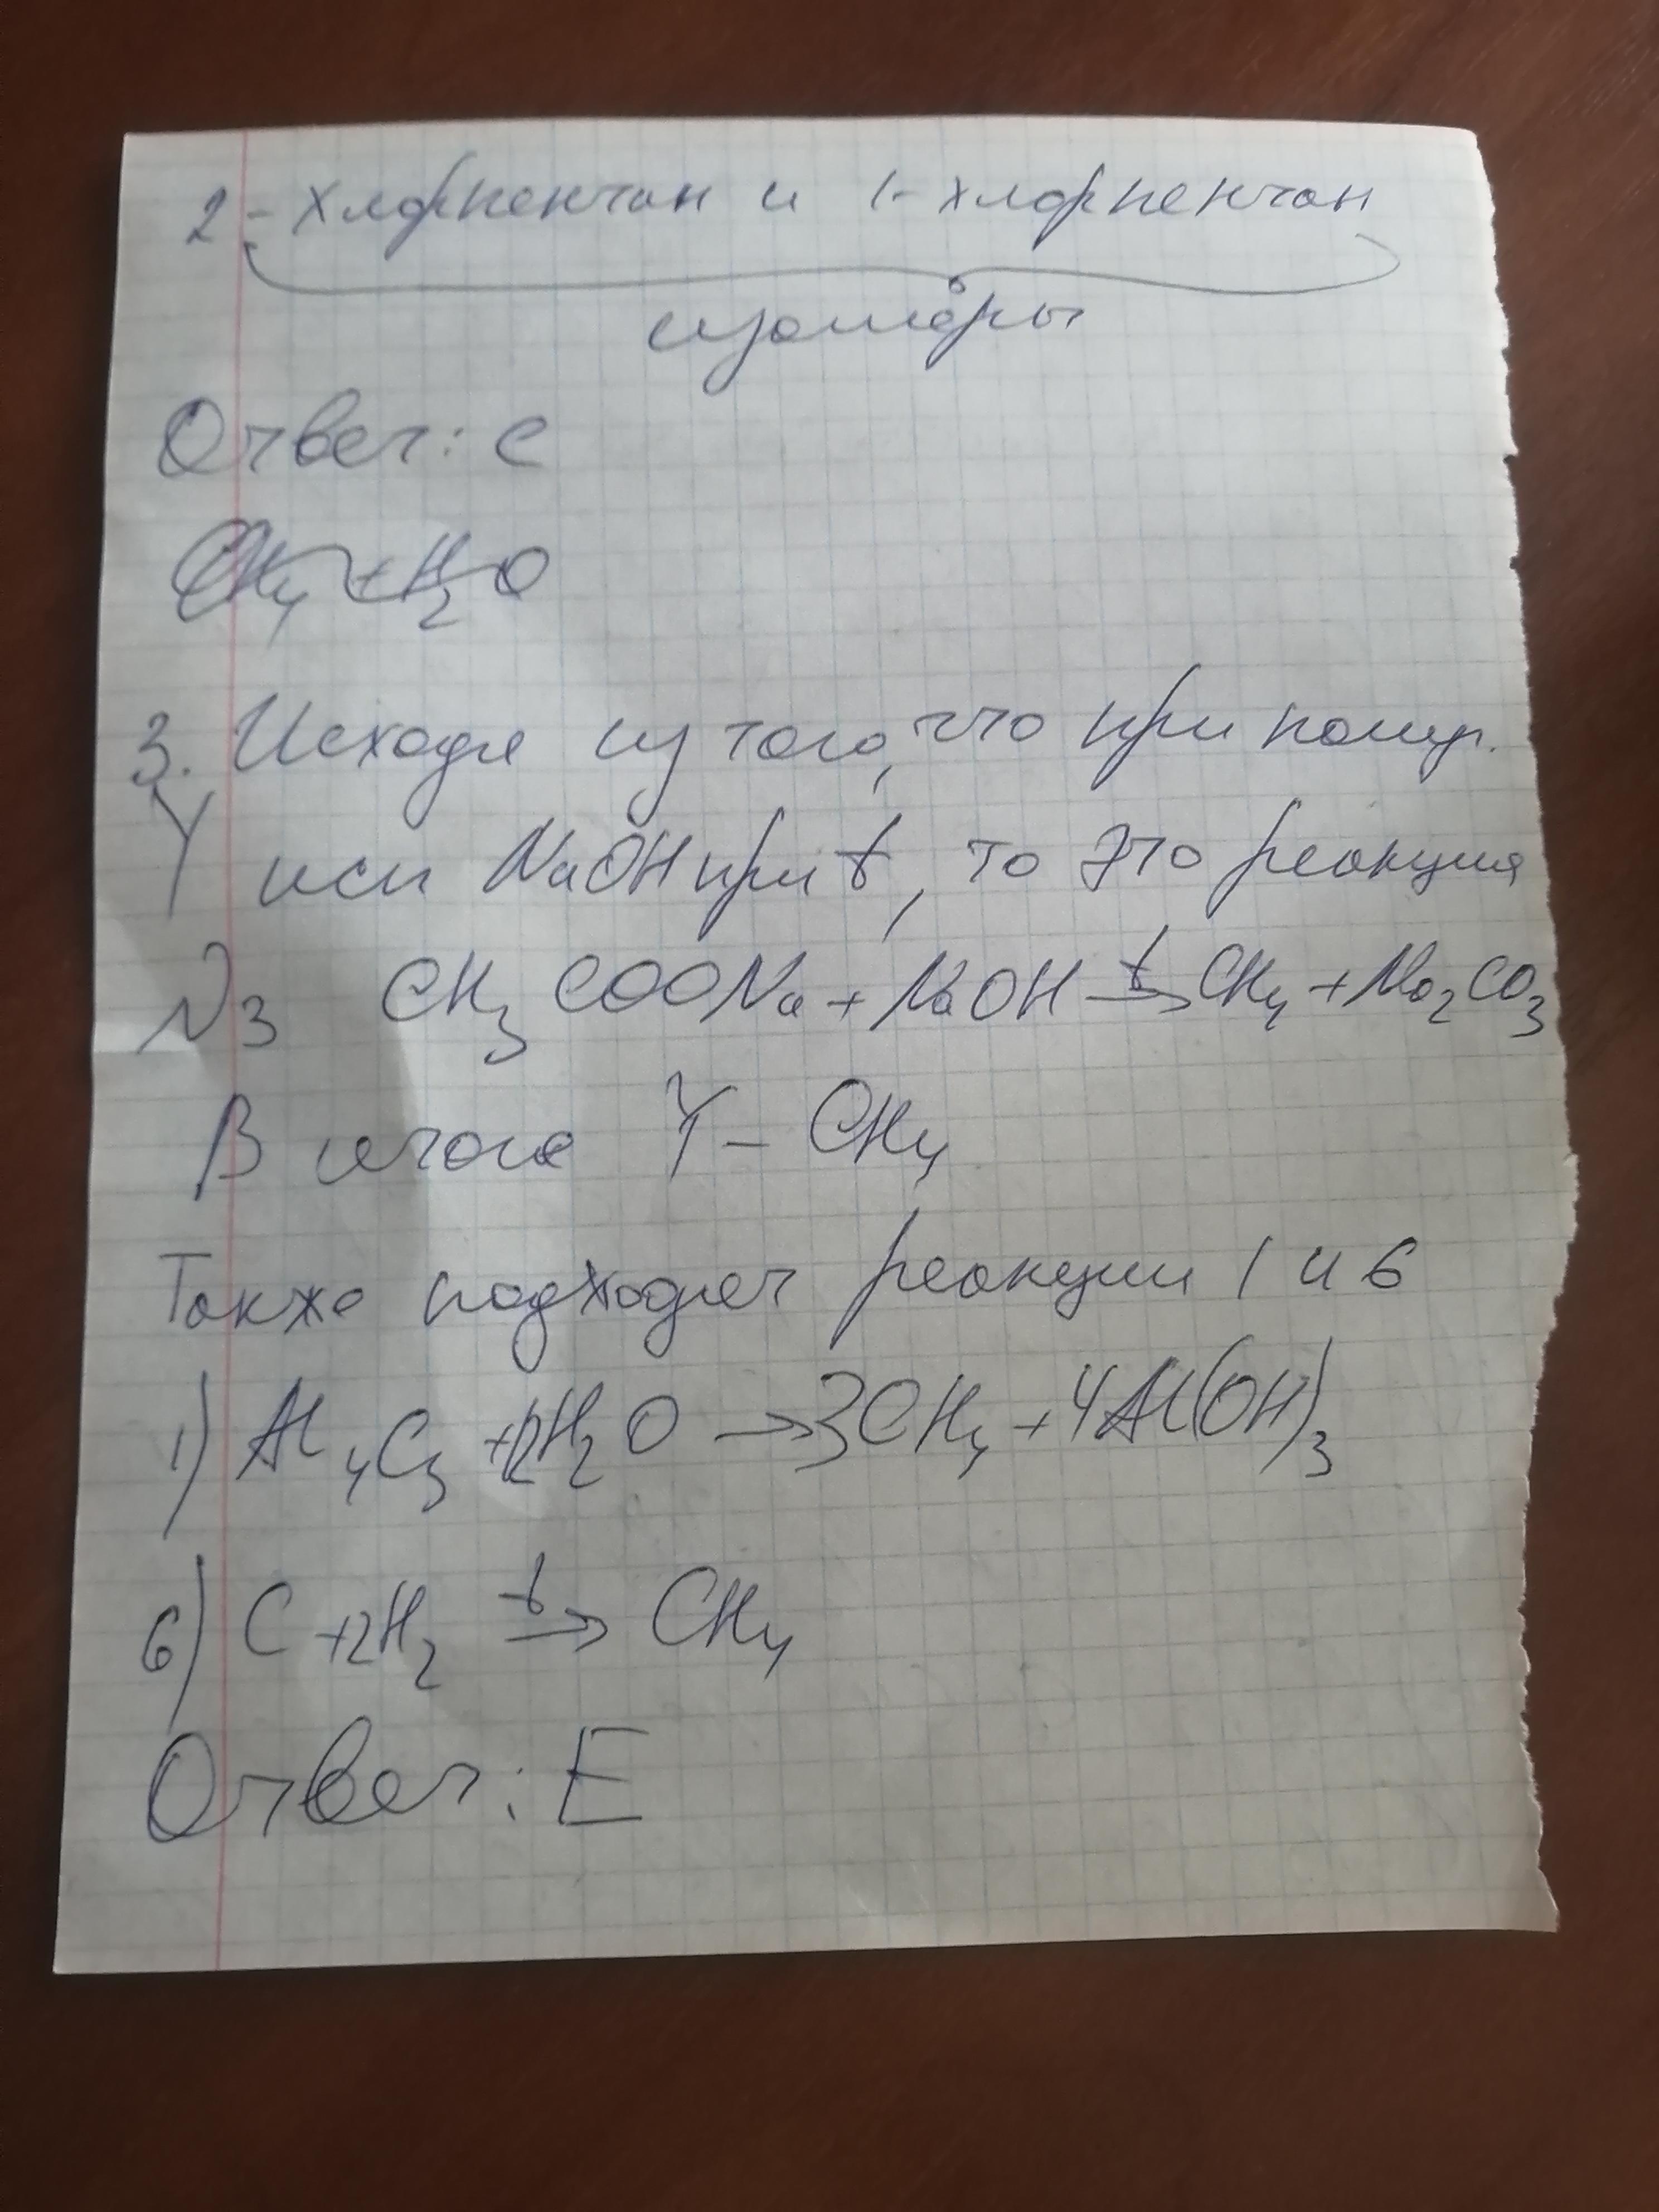 2-хлорпентан и 1-хлорпентан
изомеры
Ответ: С
CH₄ + H₂O
3. Исходя из того, что при получ.
Y исп NaOH при t, то это реакция
N3 CH₃COONa + NaOH →ᵗ CH₄ + Na₂CO₃
В итоге Y – CH₄
Также подходят реакции 1 и 6
1) Al₄C₃ + 12H₂O → 3CH₄ + 4Al(OH)₃
6) C + 2H₂ →ᵗ CH₄
Ответ: E